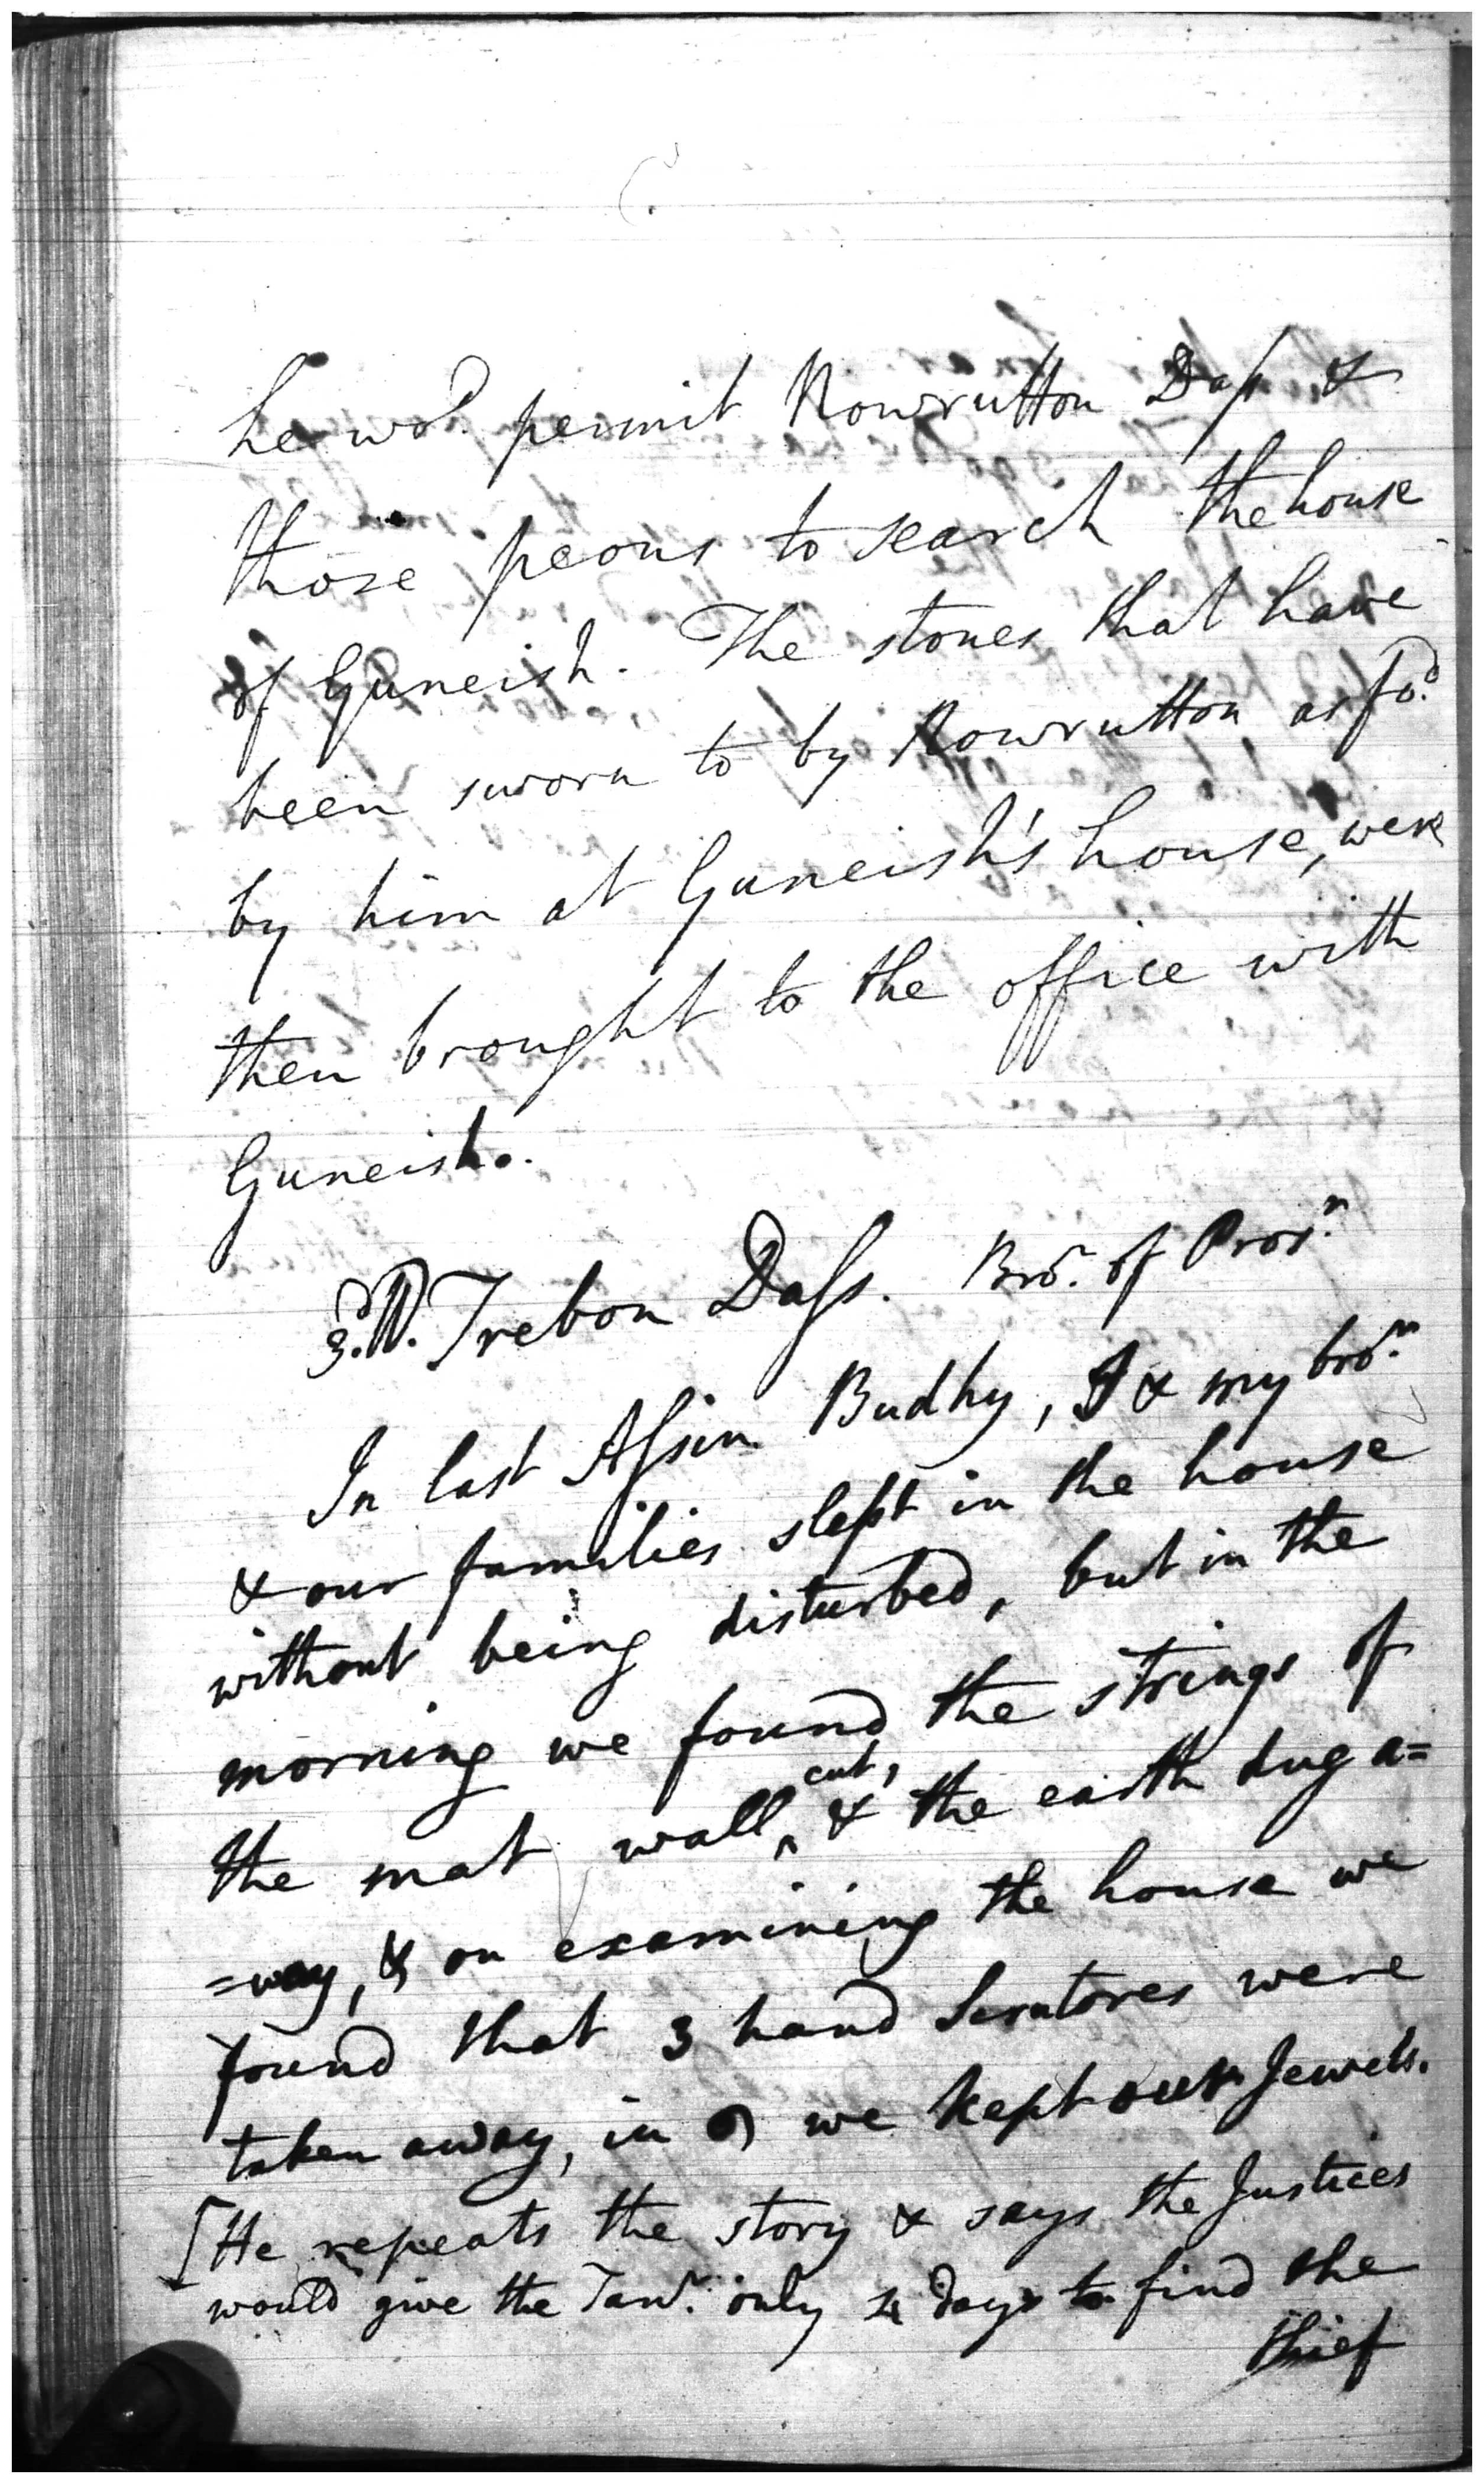 he wod. permit Nowrutton Dass &
those peons to search the house
of Guneish. The stones that have
been sworn to by Nowrutton as fod.
by him at Guneish's house, were
then brought to the office with
Guneish.
3.W. Trebon Dass. Bror. of Pror.n
In last Assin Budhy, I & my bror.
& our families slept in the house
without being disturbed, but in the
morning we found the strings of
the mat wall ^cut, & the earth dug a=
=way, & on examining the house we
found that 3 hand Scrutores were
taken away, in we kept our Jewels.
[He repeats the story & says the Justices
would give the Tanr. only 4 days to find the
thief